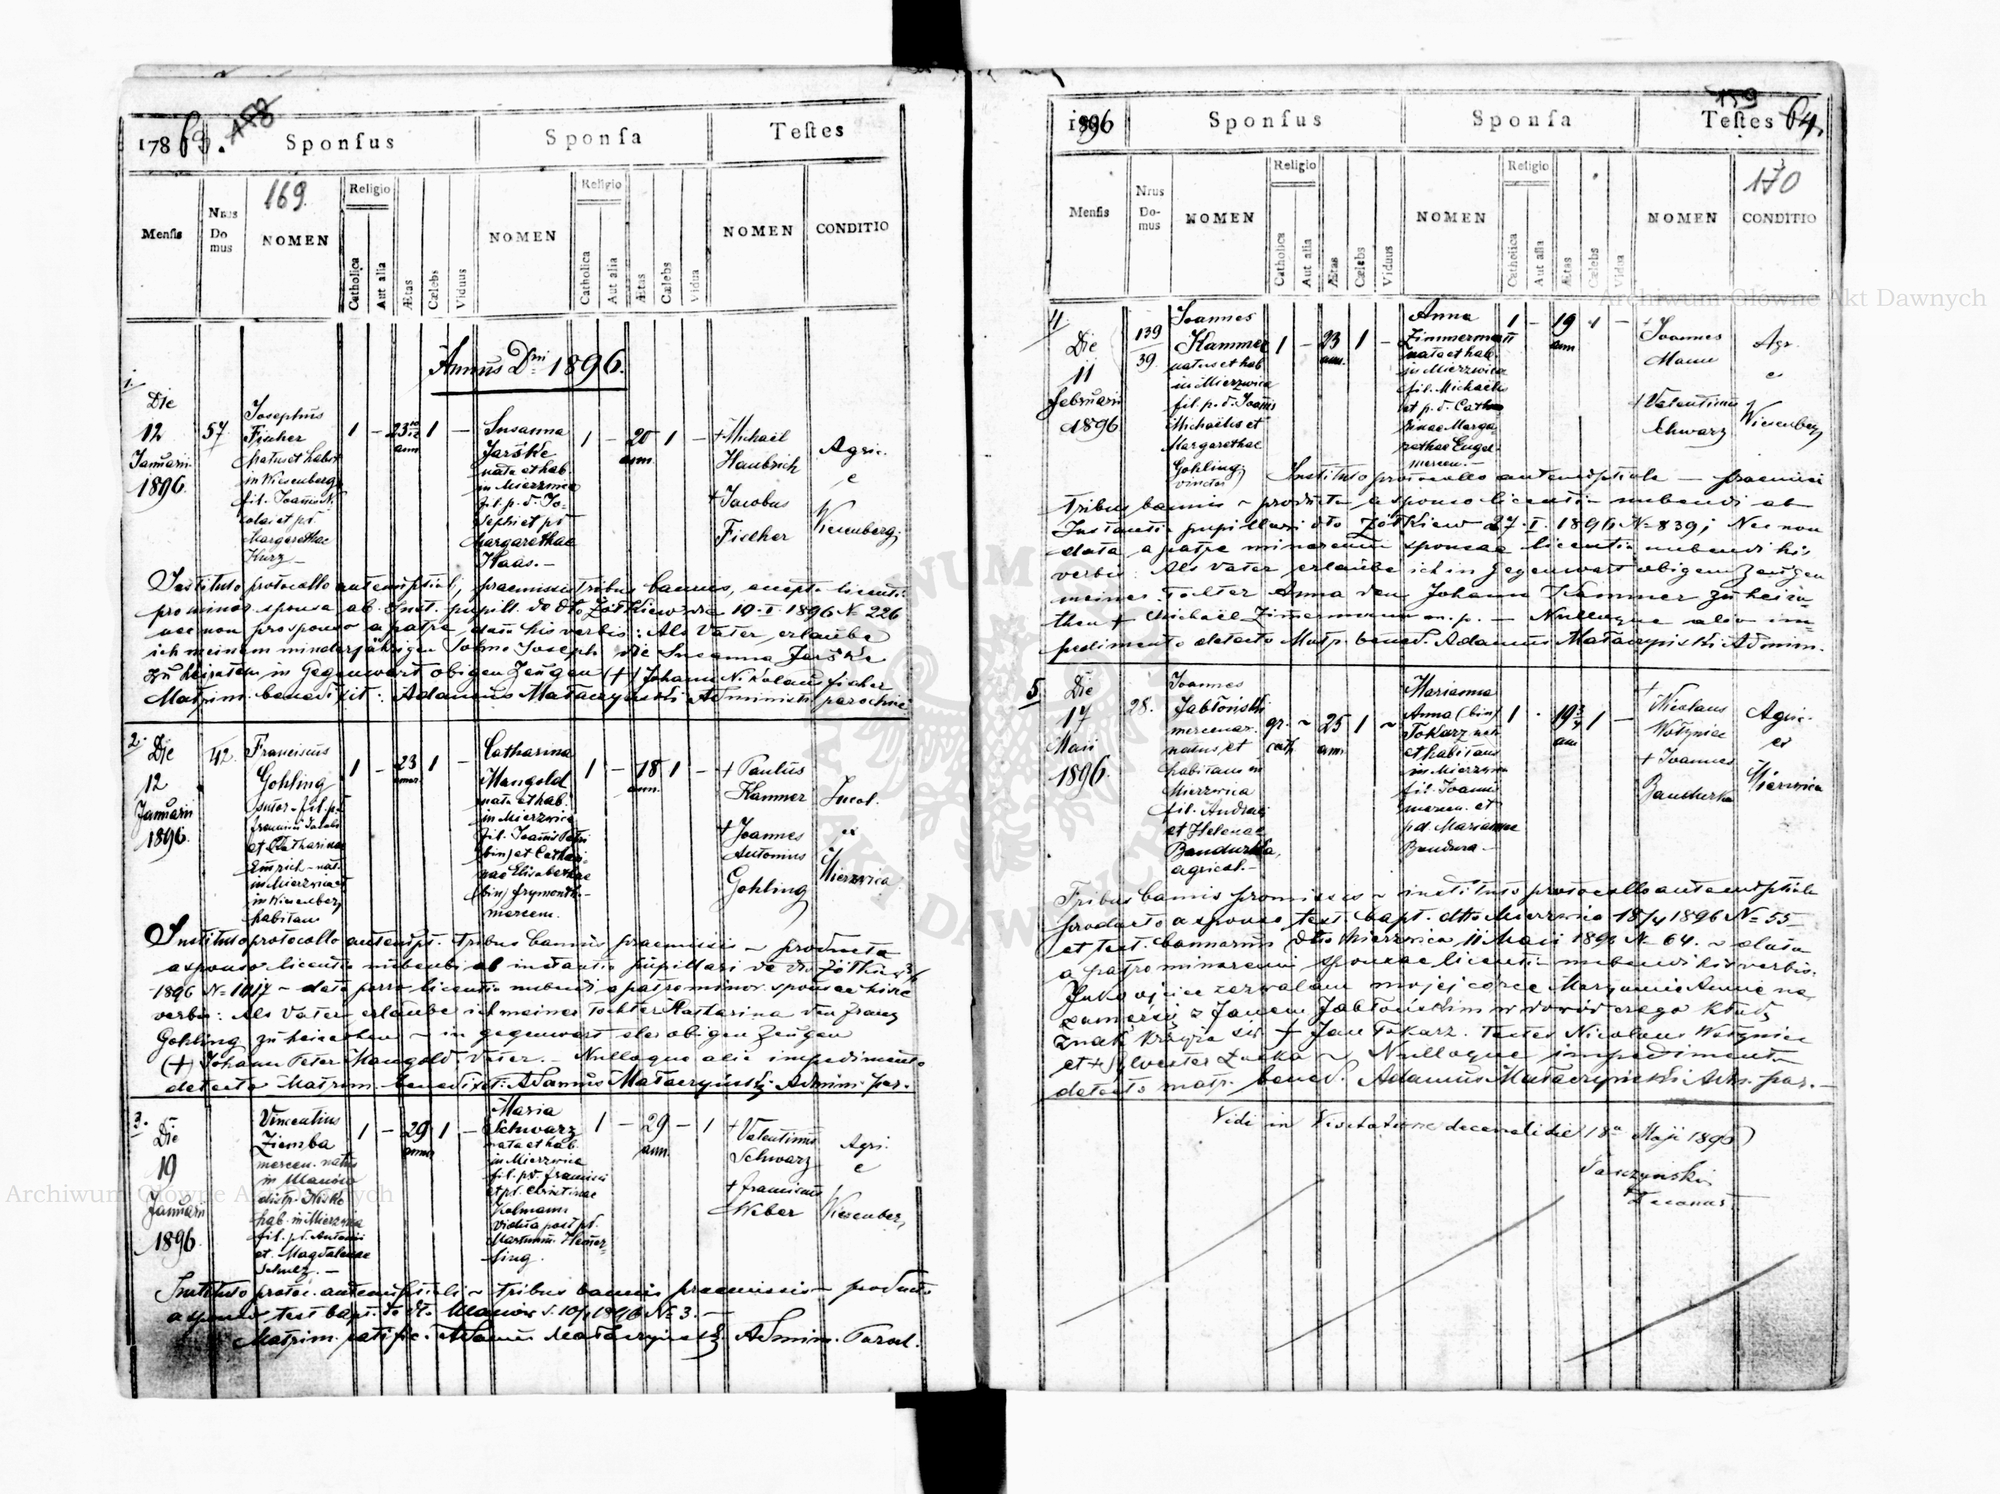 178 63. 158
Sponsus
Sponsa
Testes
Mensis
Nrus Do mus
169.
NOMEN
Religio
Catholica
Aut alia
Ætas
Cælebs
Viduus
NOMEN
Religio
Catholica
Aut alia
Ætas
Cælebs
Vidua
NOMEN
CONDITIO
Annus Dni 1896.
1.
Die
12
Januarii
1896.
57.
Josephus
Fischer
natus et habit
in Wiesenberg
fil. Joannis Ni
colai et pd
Margarethae
Kurz
1 – 23 10/12 ann. 1 –
Susanna
Jarske
nata et hab.
in Mierzwica
fil. p. d. Jo-
sephi et pd
Margarethae
Haas. –
1 – 20 ann. 1 –
+ Michael
Haubrich
+ Jacobus
Fischer
Agric.
e
Wiesenberg.
Instituto protocollo antenuptiali, praemissis tribus bannis, accepta licentia
pro minor. sponsa ab Inst. pupill. de dto Żółkiew die 10. I. 1896 N. 226
nec non pro sponso a patre, data his verbis: Als Vater erlaube
ich meinem minderjährigen Sohne Joseph die Susanna Jarske
zu heiraten, in Gegenwart obigen Zeugen (+) Johann Nikolaus Fischer
Matrim. benedixit: Adamus Małaczyński Administ. parochiae.
2.
Die
12
Januarii
1896.
42.
Franciscus
Gohling
sutor – fil. pd
Francisci Jacobi
et Catharinae
Emrich – nat.
in Mierzwica
in Wiesenberg
habitans
1 – 23 annor. 1 –
Catharina
Mangold
nata et hab.
in Mierzwica
fil. Joannis Petri
(bin) et Cathari-
nae Elisabethae
(bin) Frymonth –
mercen.
1 – 18 ann. 1 –
+ Paulus
Kammer
+ Joannes
Antonius
Gohling
Incol.
ex
Mierzwica
Instituto protocollo antenupt. tribus bannis praemissis – producta
a sponso licentia nubendi ab instantia pupillari de dto Żółkiew
1896 N= 1017 – data porro licentia nubendi a patre minor. sponsae hisce
verbis: Als Vater erlaube ich meiner Tochter Katharina den Franz
Gohling zu heirathen – in gegenwart der obigen Zeugen
(+) Johann Peter Mangold Vater. – Nulloque alio impedimento
detecto Matrim. benedixit: Adamus Małaczyński Admin. par.
3.
Die
19
Januarii
1896.
Vincentius
Ziemba
mercen. natus
in Manów
distr. Nisko
hab. in Mierzwica
fil. pd. Antonii
et Magdalenae
Schulz. –
1 – 29 annor 1 –
Maria
Schwarz
nata et hab.
in Mierzwica
fil. pd. Francisci
et pd. Christinae
Holmann
vidua post pd.
Martinum Hemer-
ling.
1 – 29 ann. – 1
+ Valentinus
Schwarz
+ Franciscus
Weber
Agri.
e
Wiesenber,
Instituto protoc. antenuptiali – tribus bannis praemissis – producto
a sponso test. bapt. de dto Manów d. 10/1 1896 N= 3. –
Matrim. ratific. Adamus Małaczyński. Admin. Paroch.
1896
Sponsus
Sponsa
Testes 64.
159
Mensis
Nrus Do- mus
NOMEN
Religio
Catholica
Aut alia
Ætas
Cælebs
Viduus
NOMEN
Religio
Catholica
Aut alia
Ætas
Cælebs
Vidua
NOMEN
170
CONDITIO
4.
Die
11
Februarii
1896
139
39.
Joannes
Kammer
natus et hab
in Mierzwica
fil. p. d. Joannis
Michaelis et
Margarethae
Gohling
1 – 23 ann. 1 –
Anna
Zimmermann
nata et hab.
in Mierzwica
fil. Michaelis
et p. d. Catha
rinae Marga
rethae Engel
mercen. –
1 – 19 ann. 1 –
+ Joannes
Mann
+ Valentinus
Schwarz
Agr.
e
Wiesenberg
Instituto protocollo antenuptiali – praemissis
tribus bannis – producta a sponso licentia nubendi ab
Instantia pupillari dto Żółkiew 27. I. 1896 N= 839; Nec non
data a patre minorenni sponsae licentia nubendi his
verbis: Als Vater erlaube ich in Gegenwart obigen Zeugen
meiner Tochter Anna den Johann Kammer zu heira-
then + Michaël Zimmermann m. p. – Nulloque alio im-
pedimento detecto Matr. bened. Adamus Małaczyński Admin.
5.
Die
17
Maii
1896.
28.
Joannes
Jabłoński
mercenar.
natus et
habitans in
Mierzwica
fil. Andreae
et Helenae
Bandurka,
agricol. –
gr. cath. ~ 25 ann. 1 ~
Marianna
Anna (bin)
Tokarz nata
et habitans
in Mierzwica
fil. Joannis
mercen. et
pd. Mariannae
Bandura –
1 . 19 3/4 ann 1 –
+
Nicolaus
Wołyniec
+ Joannes
Bandurka
Agric.
ex
Mierzwica
Tribus bannis promissis – instituto protocollo antenuptiali
producto a sponso test. bapt. dtto Mierzwica 18/4 1896 N= 55
et test. bannorum dtto Mierzwica 11 Maii 1896 N= 64. – data
a patre minorenni sponsae licentia nubendi his verbis:
Jako ojciec zezwalam mojej córce Maryannie Annie na
zamęście z Janem Jabłońskim w dowód czego kładę
znak krzyża św. + Jan Tokarz. Testes Nicolaus Wołyniec
et + Sylvester Zuska – Nulloque impedimento
detecto matr. bened. Adamus Małaczyński Adm. par. –
Vidi in Visitatione decanali die 18a Maji 1896
Decanus
Archiwum Główne Akt Dawnych
Archiwum Główne Akt Dawnych